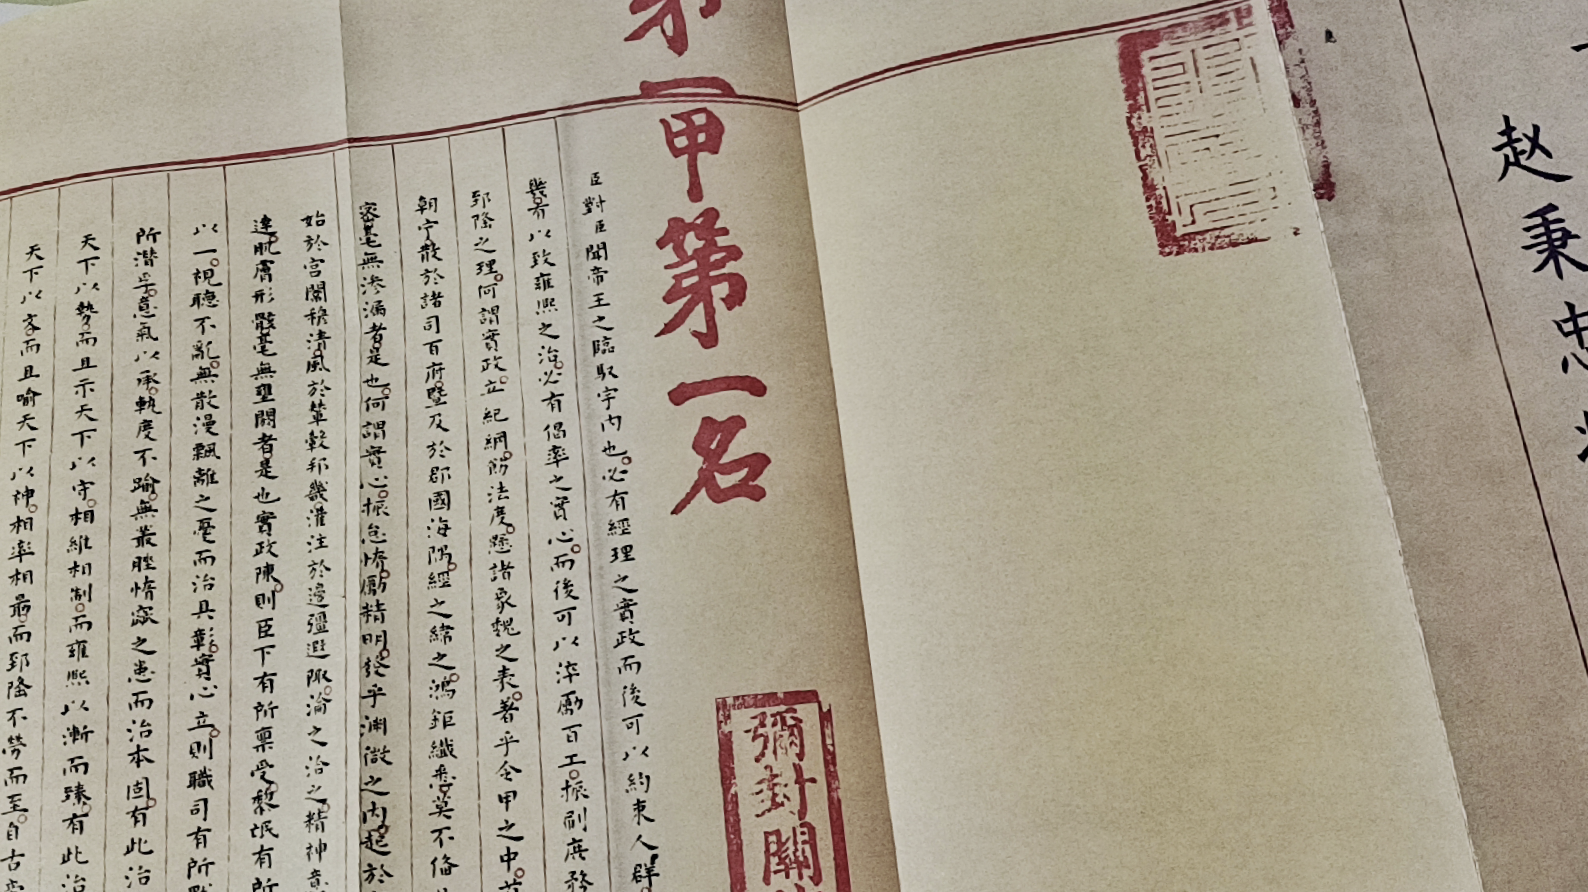 赵秉忠
第一甲第一名
彌封關
臣對臣聞帝王之臨馭宇內也必有經理之實政而後可以約束人群
以致雍熙之治必有倡率之實心而後可以淬勵百工振刷庶務
郅隆之理何謂實政立紀綱飭法度懸諸象魏之表著乎令甲之中
朝宁散於諸司百府暨及於郡國海隅經之緯之鴻鉅纖悉莫不備
密毫無滲漏者是也何謂實心振怠惰勵精明發乎淵微之內起於
始於宮闈穆清風於輦轂邦畿灌注於邊疆遐陬淪之洽之精神意
達肌膚形骸毫無壅閼者是也實政陳則臣下有所稟受黎氓有所
以一視聽不亂無散漫飄離之憂而治具彰實心立則職司有所
所潛孚意氣以承軌度不踰無叢脞惰窳之患而治本固有此治
天下以勢而且示天下以守相維相制而雍熙以漸而臻有此治
天下以文而且喻天下以神相率相最而郅隆不勞而至自古